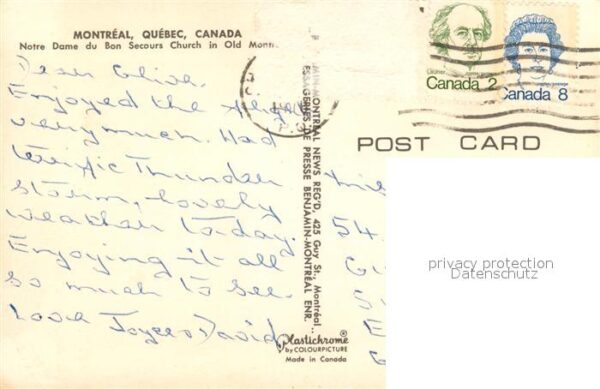 MONTRÉAL, QUÉBEC, CANADA
Notre Dame du Bon Secours Church in Old
Dear Olive.
Enjoyed the
very much. Had
terrific Thunder
storm, lovely
weather today.
Enjoying it all
so much to see.
Love Joyce & David
MIN-MONTREAL NEWS REG'D, 425 Guy St., Montréal
ESSAGERIES DE PRESSE BENJAMIN-MONTRÉAL ENR.
Plastichrome®
by COLOURPICTURE
Made in Canada
Canada 2
Canada 8
POST CARD
54.
privacy protection
Datenschutz